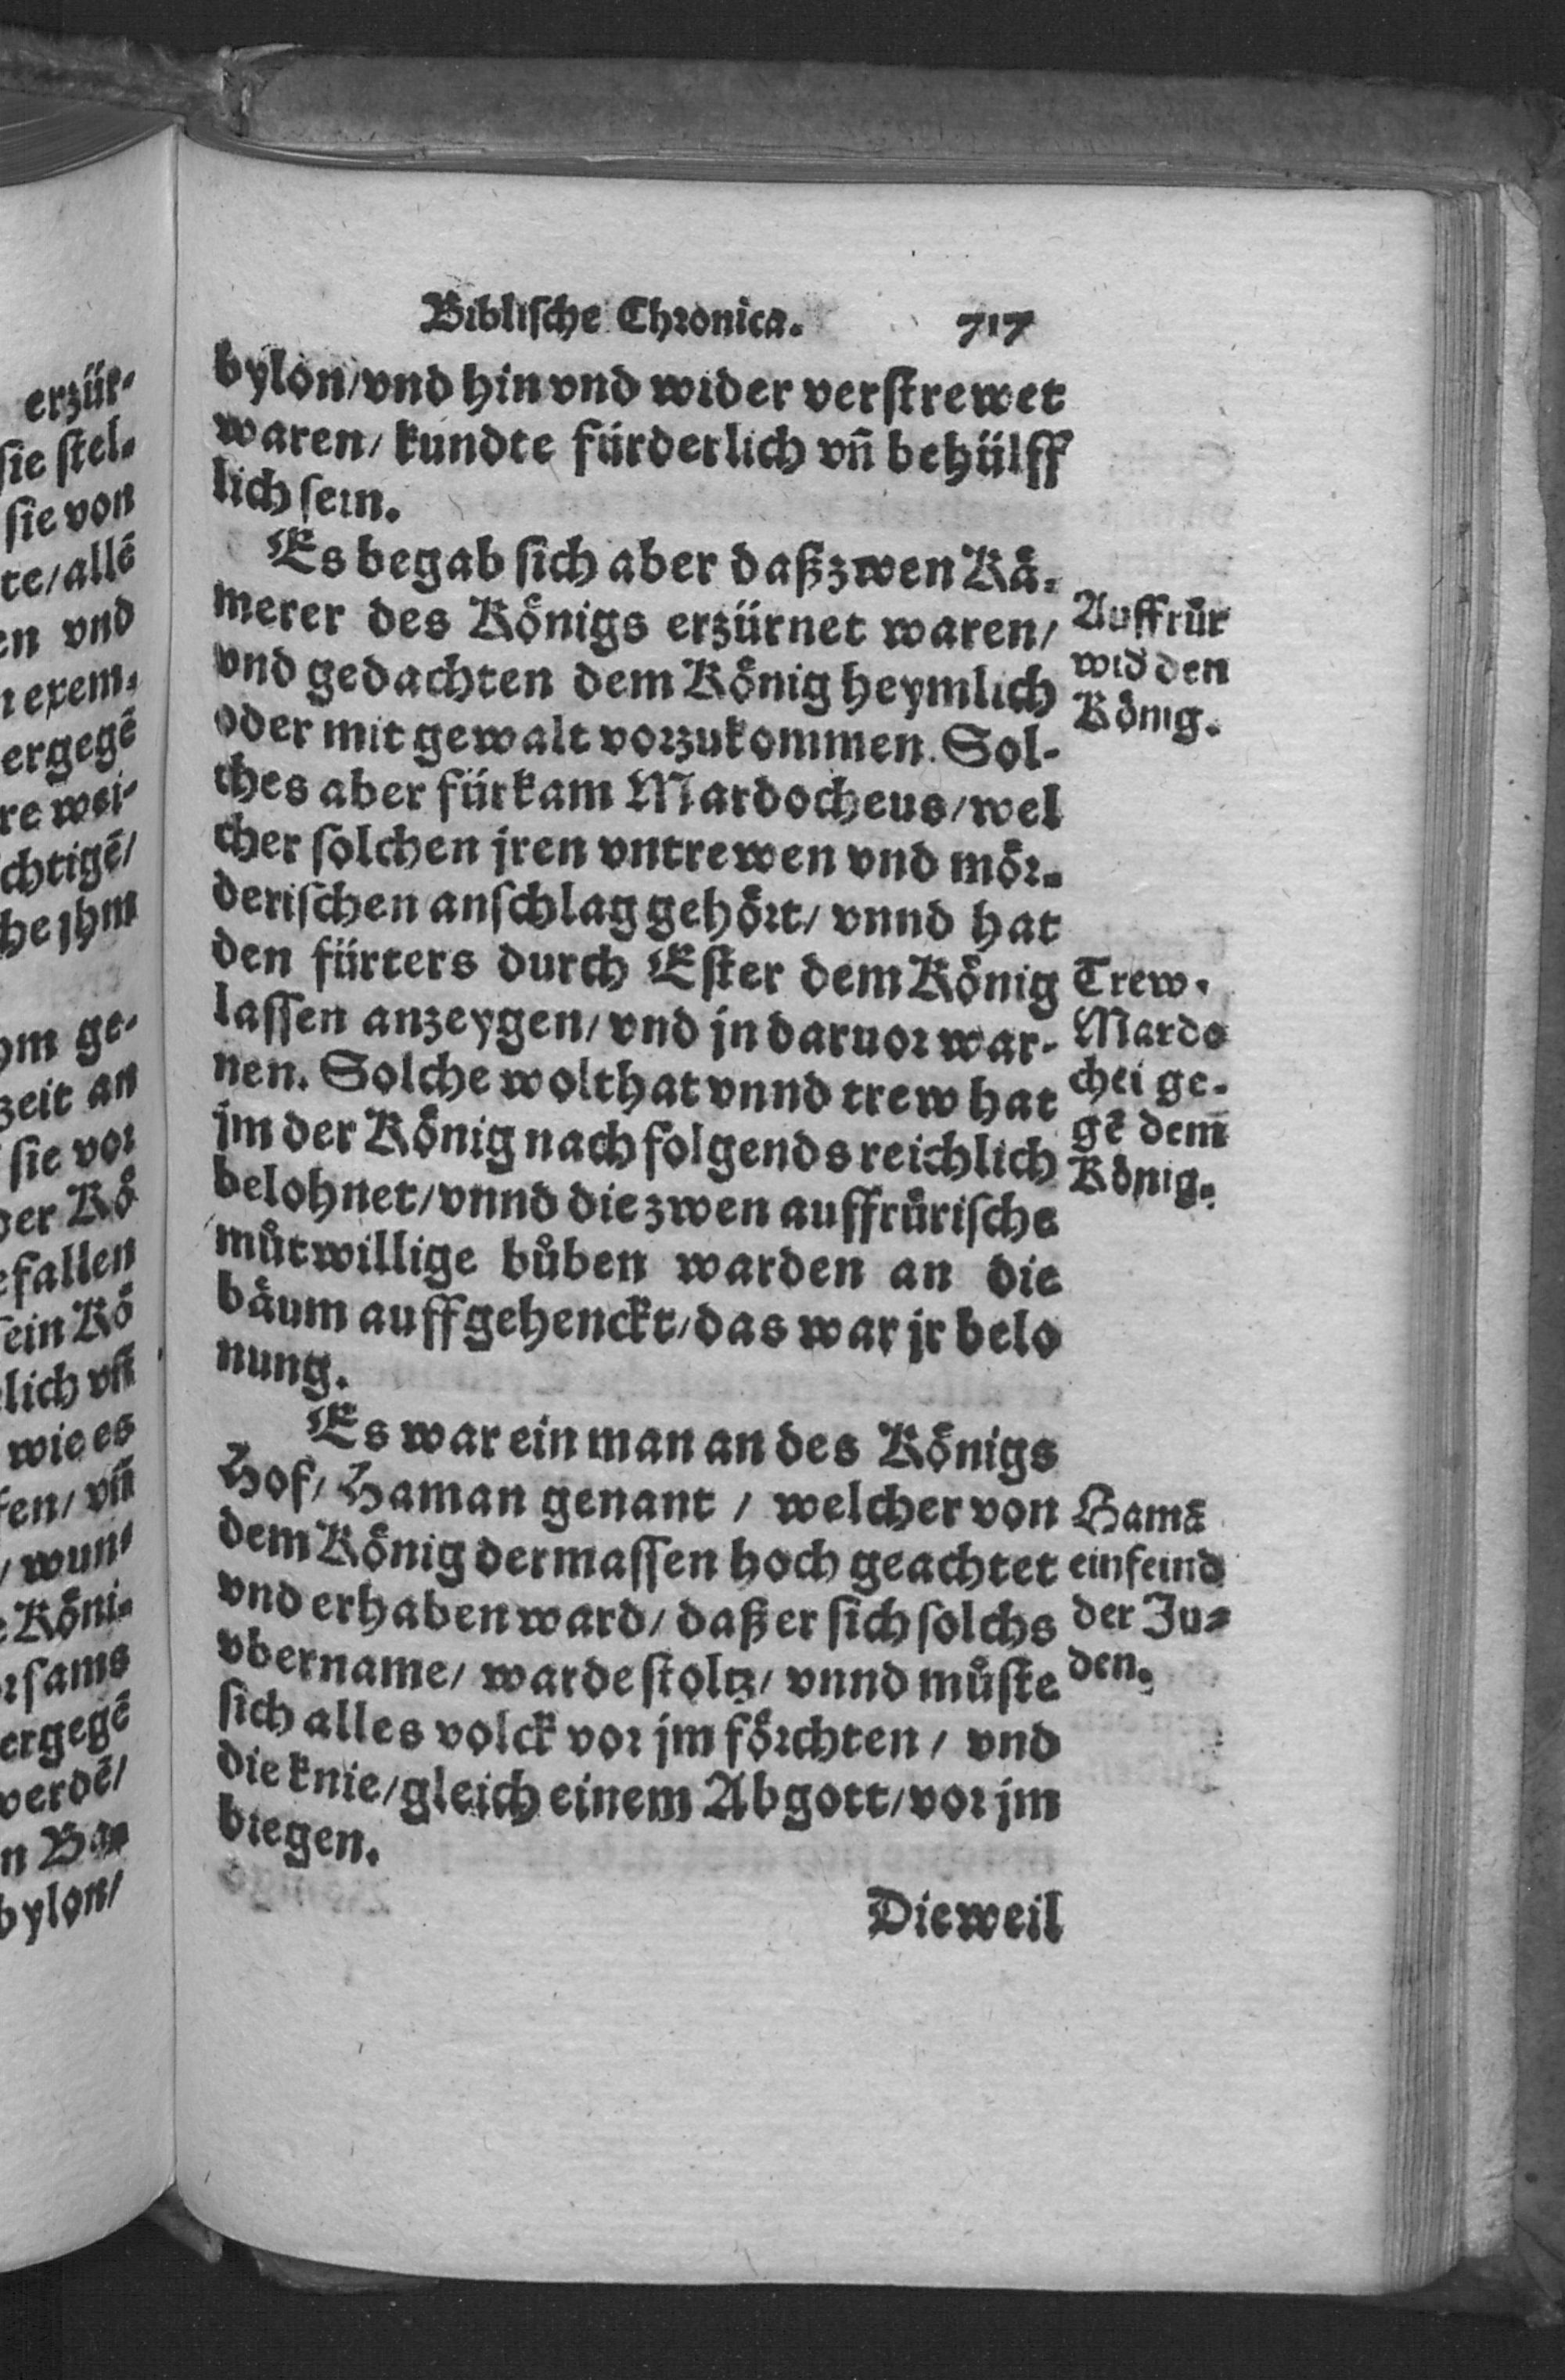 Biblische Chronica. 717
bylon/vnd hin vnd wider verstrewet
waren/ kundte fürderlich vñ behülff
lich sein.
Es begab sich aber daß zwen Kå-
merer des Königs erzürnet waren/
vnd gedachten dem König heymlich
oder mit gewalt vorzukommen. Sol-
ches aber fürkam Mardocheus/wel
cher solchen jren vntrewen vnd mör-
derischen anschlag gehört/ vnnd hat
den fürters durch Ester dem König
lassen anzeygen/ vnd jn daruor war-
nen. Solche wolthat vnnd trew hat
jm der König nachfolgends reichlich
belohnet/vnnd die zwen auffrůrische
můtwillige bůben warden an die
bäum auffgehenckt/das war jr belo
nung.
Es war ein man an des Königs
Hof/ Haman genant / welcher von
dem König dermassen hoch geachtet
vnd erhaben ward/ daß er sich solchs
vbername/ warde stoltz/ vnnd můste
sich alles volck vor jm förchten / vnd
die knie/gleich einem Abgott/vor jm
biegen.
Dieweil
Auffrůr
wid den
König.
Trew.
Mardo
chei ge-
gē dem
König.
Hamā
ein feind
der Ju-
den.
erzür-
sie stel-
sie von
te/allē
en vnd
exem-
ergegē
re wei-
chtigē/
he jhm
om ge-
zeit an
sie vor
der Kö
efallen
sein Kö
lich vñ
wie es
fen/ vñ
/ wun-
Köni-
rsams
ergegē
werdē/
n Ba-
bylon/